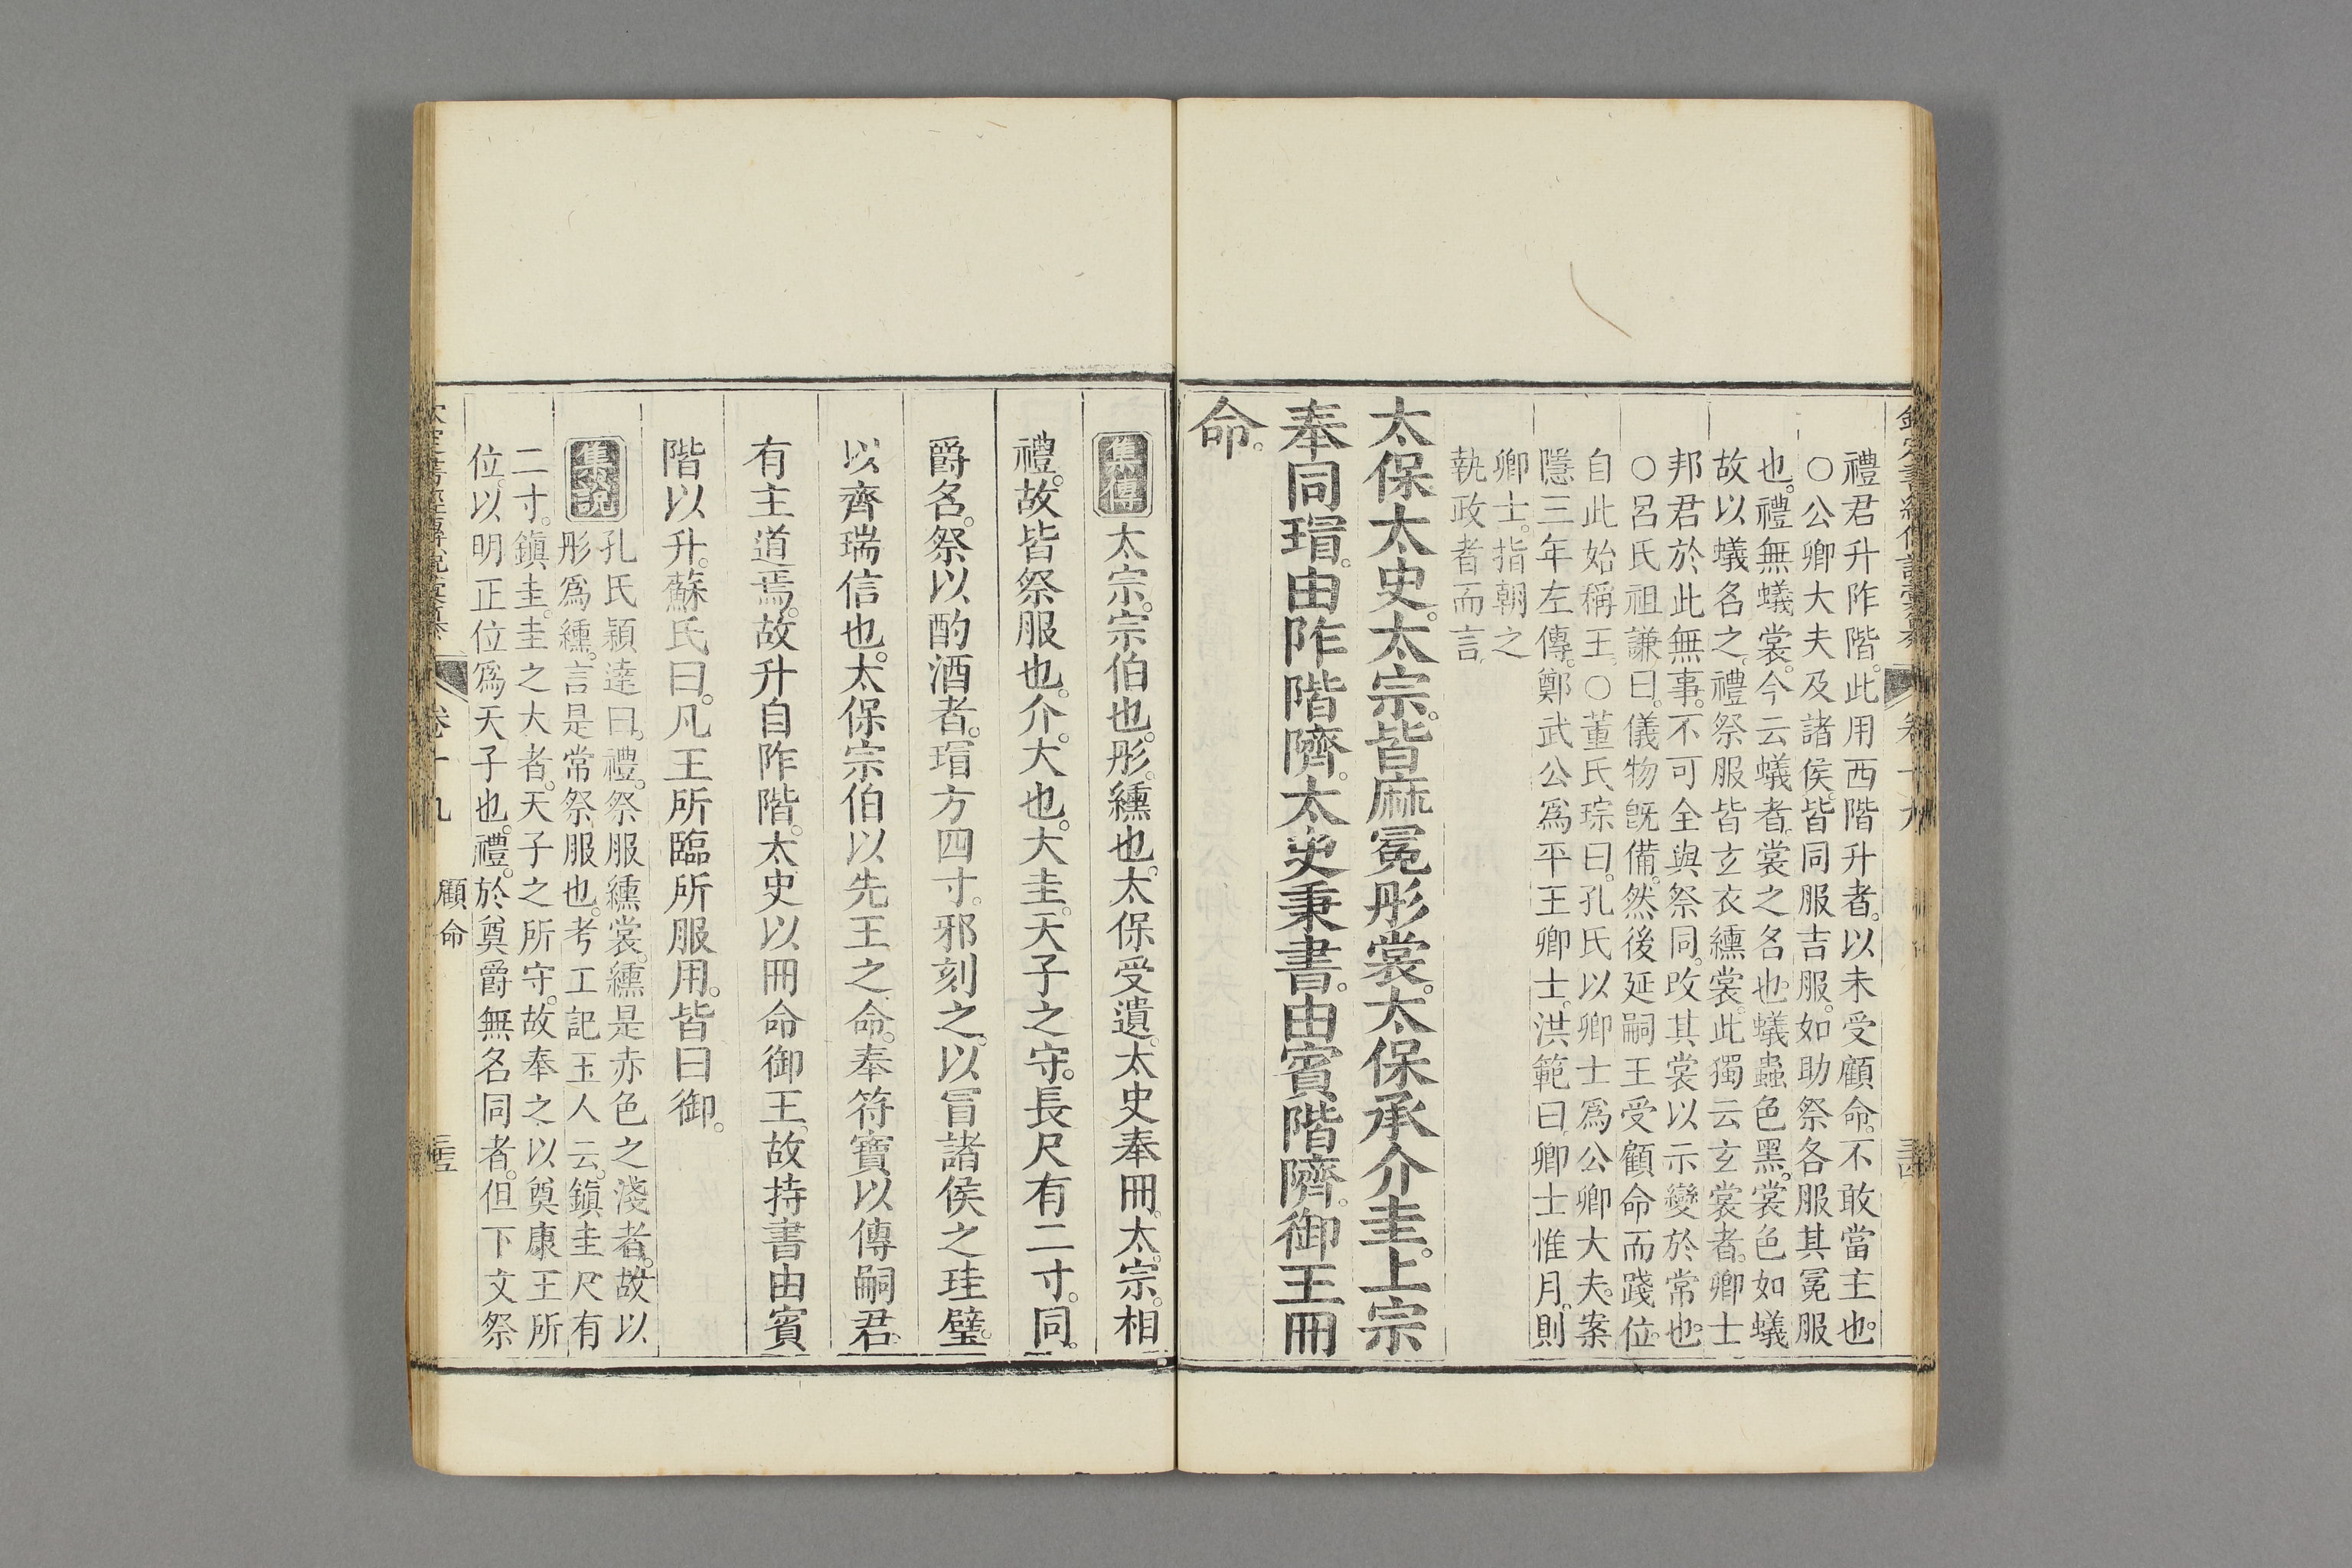 禮君升阼階。此用西階升者。以未受顧命。不敢當主也。
○公卿大夫及諸侯。皆同服吉服。如助祭各服其冕服
也。禮無蟻裳。今云蟻者。裳之名也。蟻蟲色黑。裳色如蟻
故以蟻名之。禮祭服皆玄衣纁裳。此獨云玄裳者。卿士
邦君於此無事。不可全與祭同。改其裳以示變於常也。
○呂氏祖謙曰。儀物旣備。然後延嗣王受顧命而踐位。
自此始稱王。○董氏琮曰。孔氏以卿士爲公卿大夫。案
隱三年左傳。鄭武公爲平王卿士。洪範曰。卿士惟月。則
卿士。指朝之
執政者而言。
太保太史。太宗。皆麻冕彤裳。太保承介圭。上宗
奉同瑁。由阼階隮。太史秉書。由賓階隮。御王冊
命。
集傳 太宗。宗伯也。彤。纁也。太保受遺。太史奉冊。太宗。相
禮。故皆祭服也。介。大也。大圭。天子之守。長尺有二寸。同。
爵名。祭以酌酒者。瑁方四寸。邪刻之。以冒諸侯之珪璧。
以齊瑞信也。太保宗伯以先王之命。奉符寶以傳嗣君。
有主道焉。故升自阼階。太史以冊命御王。故持書由賓
階以升。蘇氏曰。凡王所臨所服用。皆曰御。
集說 孔氏穎達曰。禮。祭服纁裳。纁是赤色之淺者。故以
彤爲纁。言是常祭服也。考工記玉人云。鎭圭尺有
二寸。鎭圭。圭之大者。天子之所守。故奉之以奠康王所
位。以明正位爲天子也。禮。於奠爵無名同者。但下文祭
卷十九 顧命